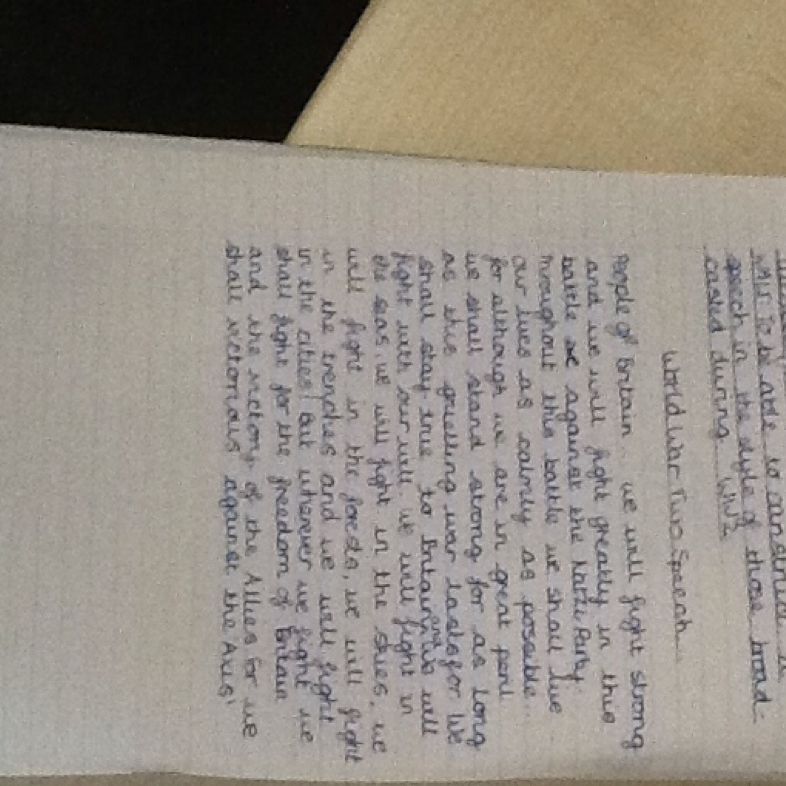 WALT: To be able to construct a
speech in the style of those broad-
casted during WW2
World War Two Speech
People of Britain we will fight strong
and we will fight greatly in this
battle against the Natzi Party.
Throughout this battle we shall live
our lives as calmly as possible
for although we are in great peril
we shall stand strong for as long
as this gruelling war lasts for We
shall stay true to Britain and we will
fight with our will. we will fight in
the seas, we will fight in the skies, we
will fight in the forests, we will fight
in the trenches and we will fight
in the cities! but wherever we fight we
shall fight for the freedom of Britain
and the victory of the Allies for we
shall victorious against the Axis!